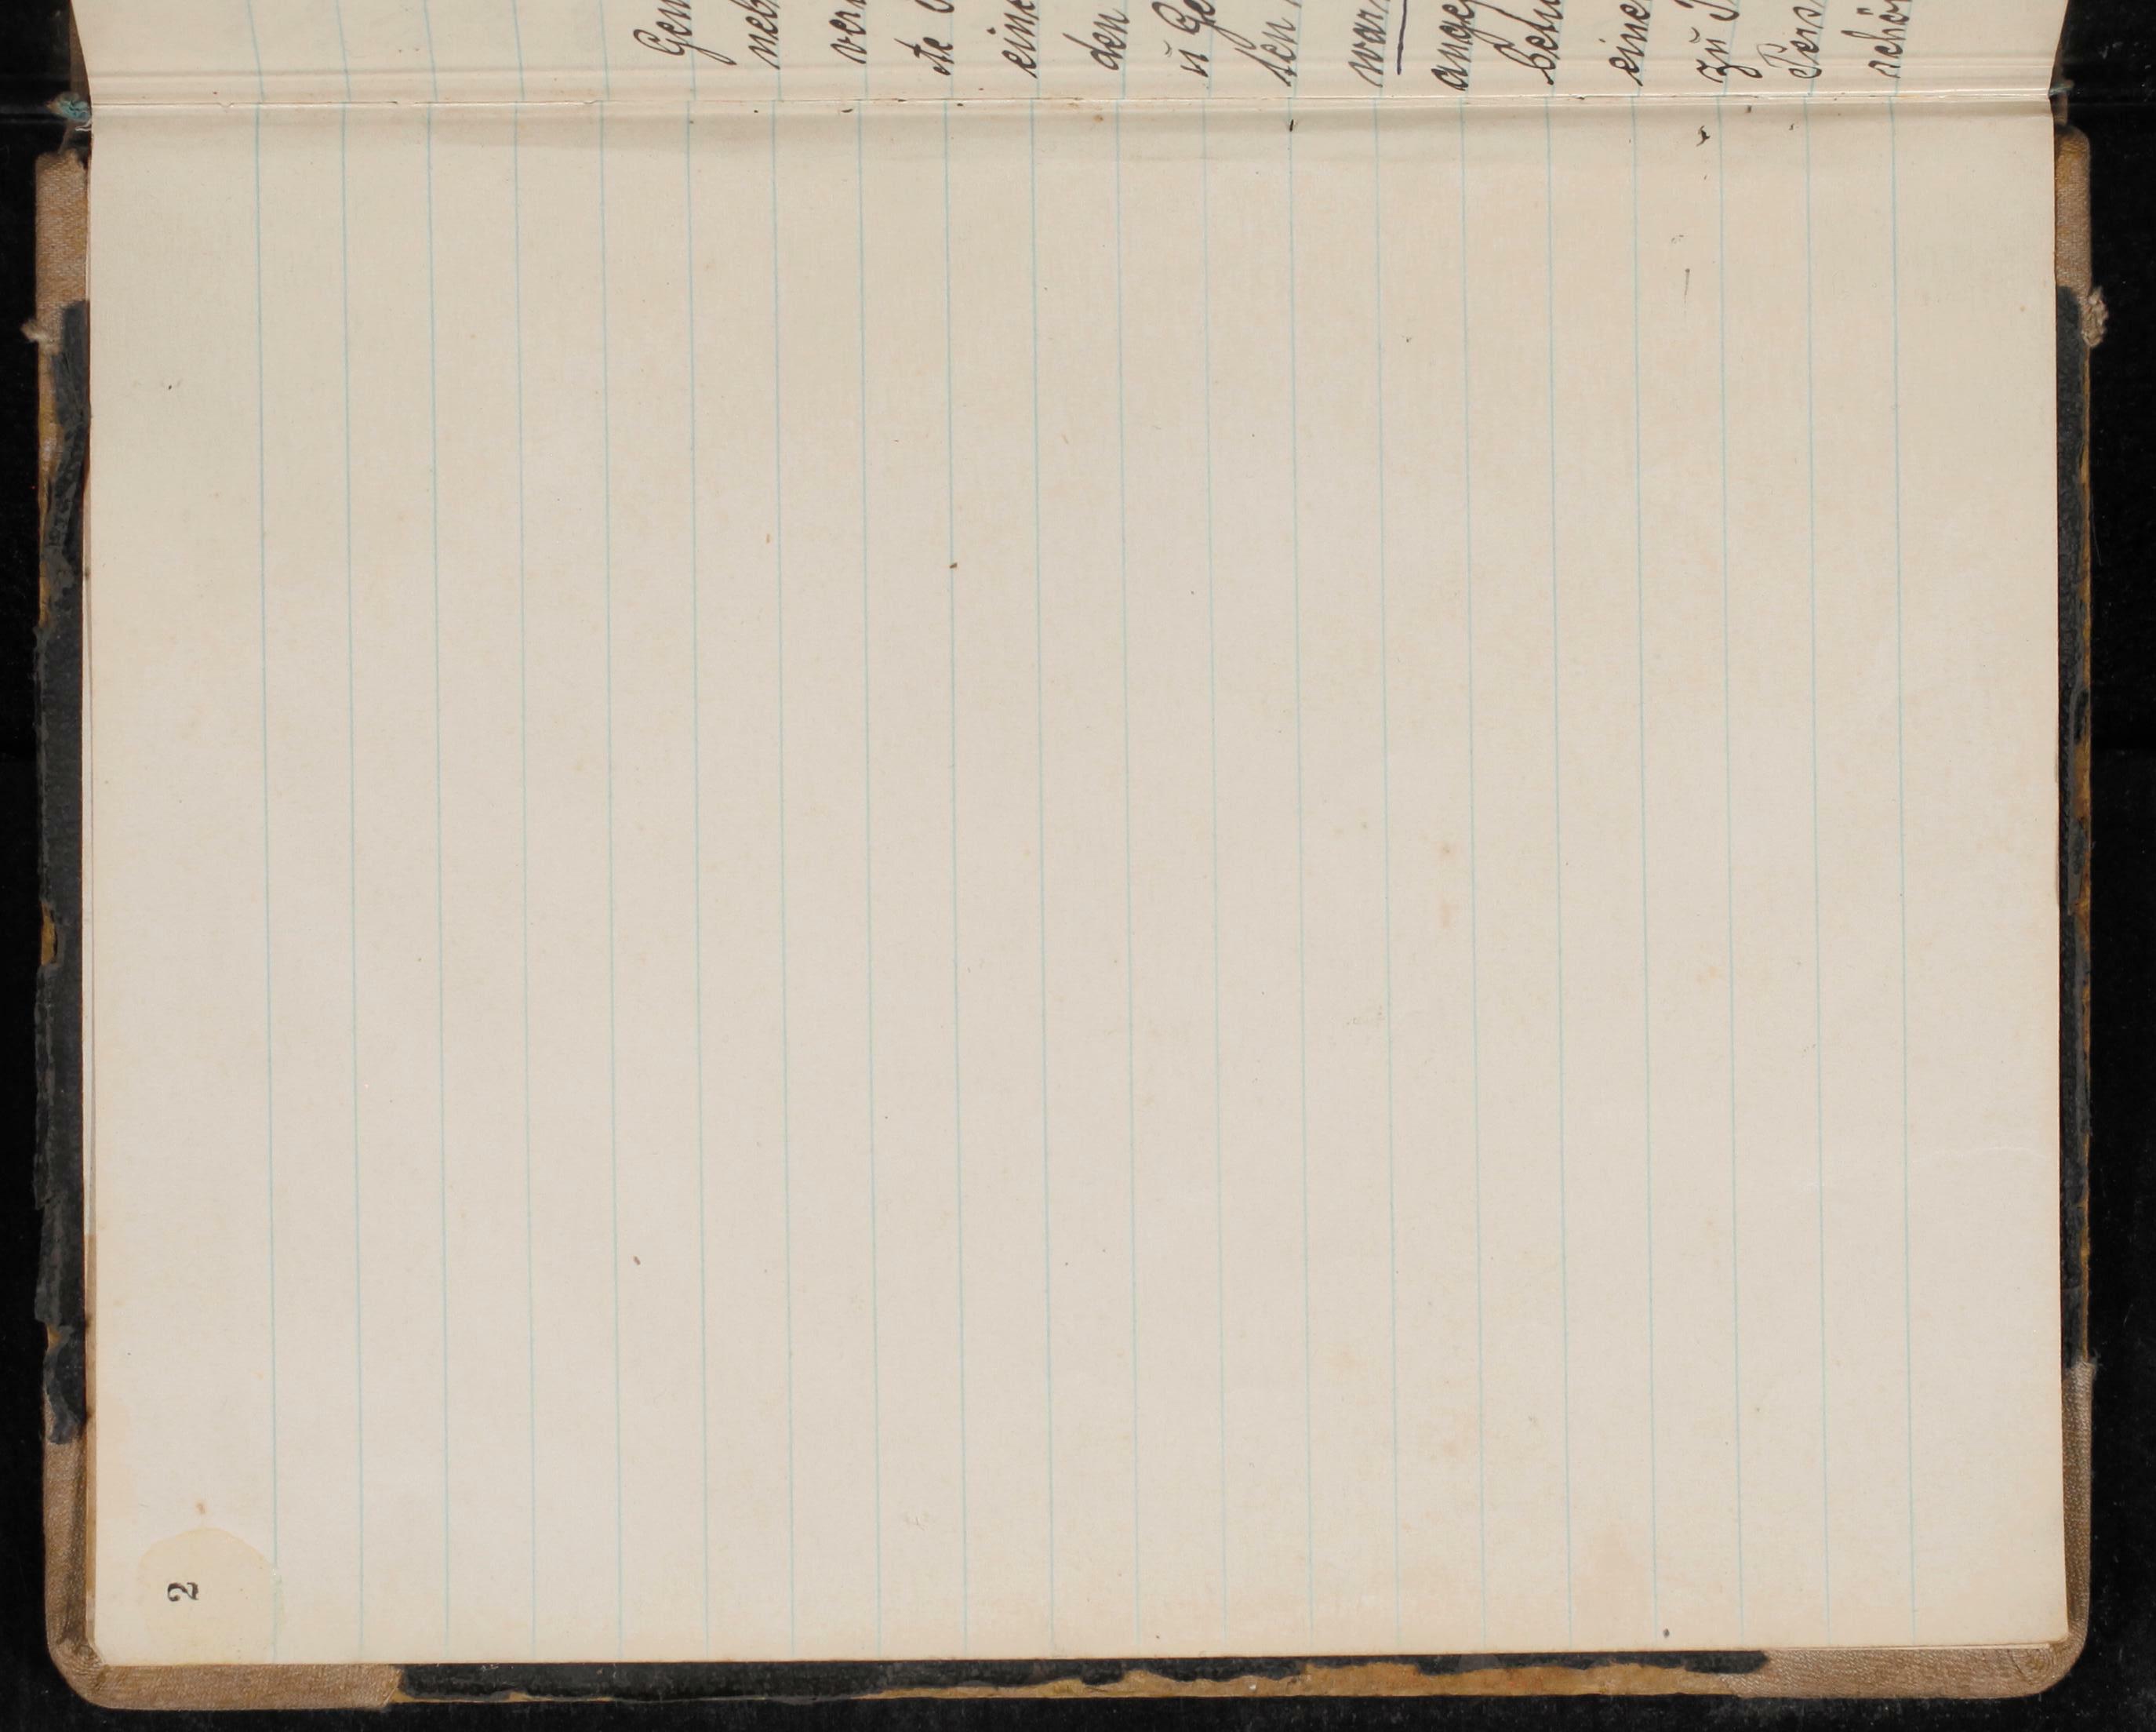 2
Gen
neb
ver
ste
eine
den
u Ge
ten
war
ange
behu
eine
zu I
Pers
schö